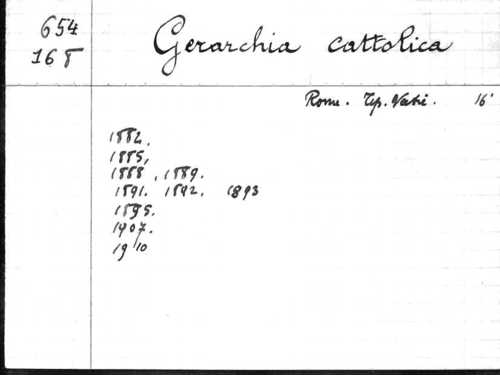 654
16
Gerarchia cattolica
Rome. Tip. Vatic. 16°
1882.
1885,
1888, 1889.
1891. 1892. 1893
1895.
1907.
1910